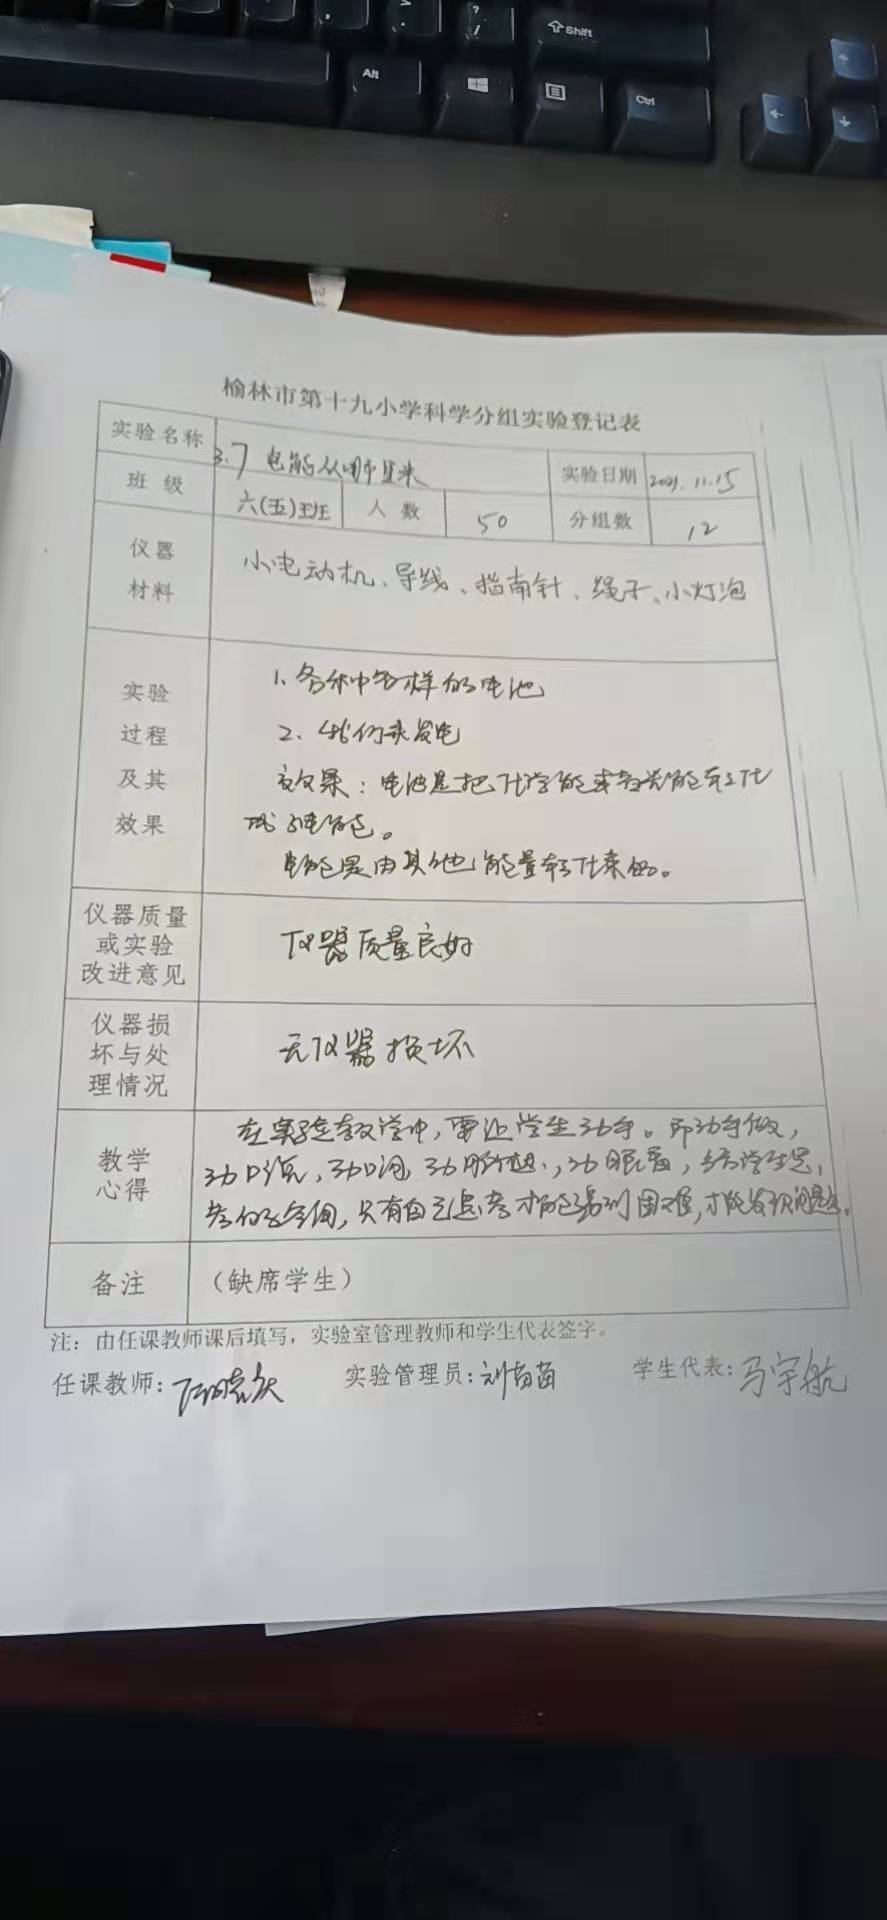 ?
/
Shift
Alt
Ctrl
榆林市第十九小学科学分组实验登记表
实验名称 3.7 电能从哪里来 实验日期 2021.11.15
班级 六(五)班 人数 50 分组数 12
仪器
材料
小电动机、导线、指南针、绳子、小灯泡
实验
过程
及其
效果
1、各种各样的电池
2、我们来发电
效果：电池是把化学能或者光能转化
成了电能。
电能是由其他能量转化来的。
仪器质量
或实验
改进意见
仪器质量良好
仪器损
坏与处
理情况
无仪器损坏
教学
心得
在实验教学中，要让学生动手。即动手做，
动口说，动口问，动脑想，动眼看，给学生思
考的空间，只有自己思考才能遇到困难，才能发现问题。
备注 （缺席学生）
注：由任课教师课后填写，实验室管理教师和学生代表签字。
任课教师： 实验管理员：刘苗苗 学生代表：马宇航